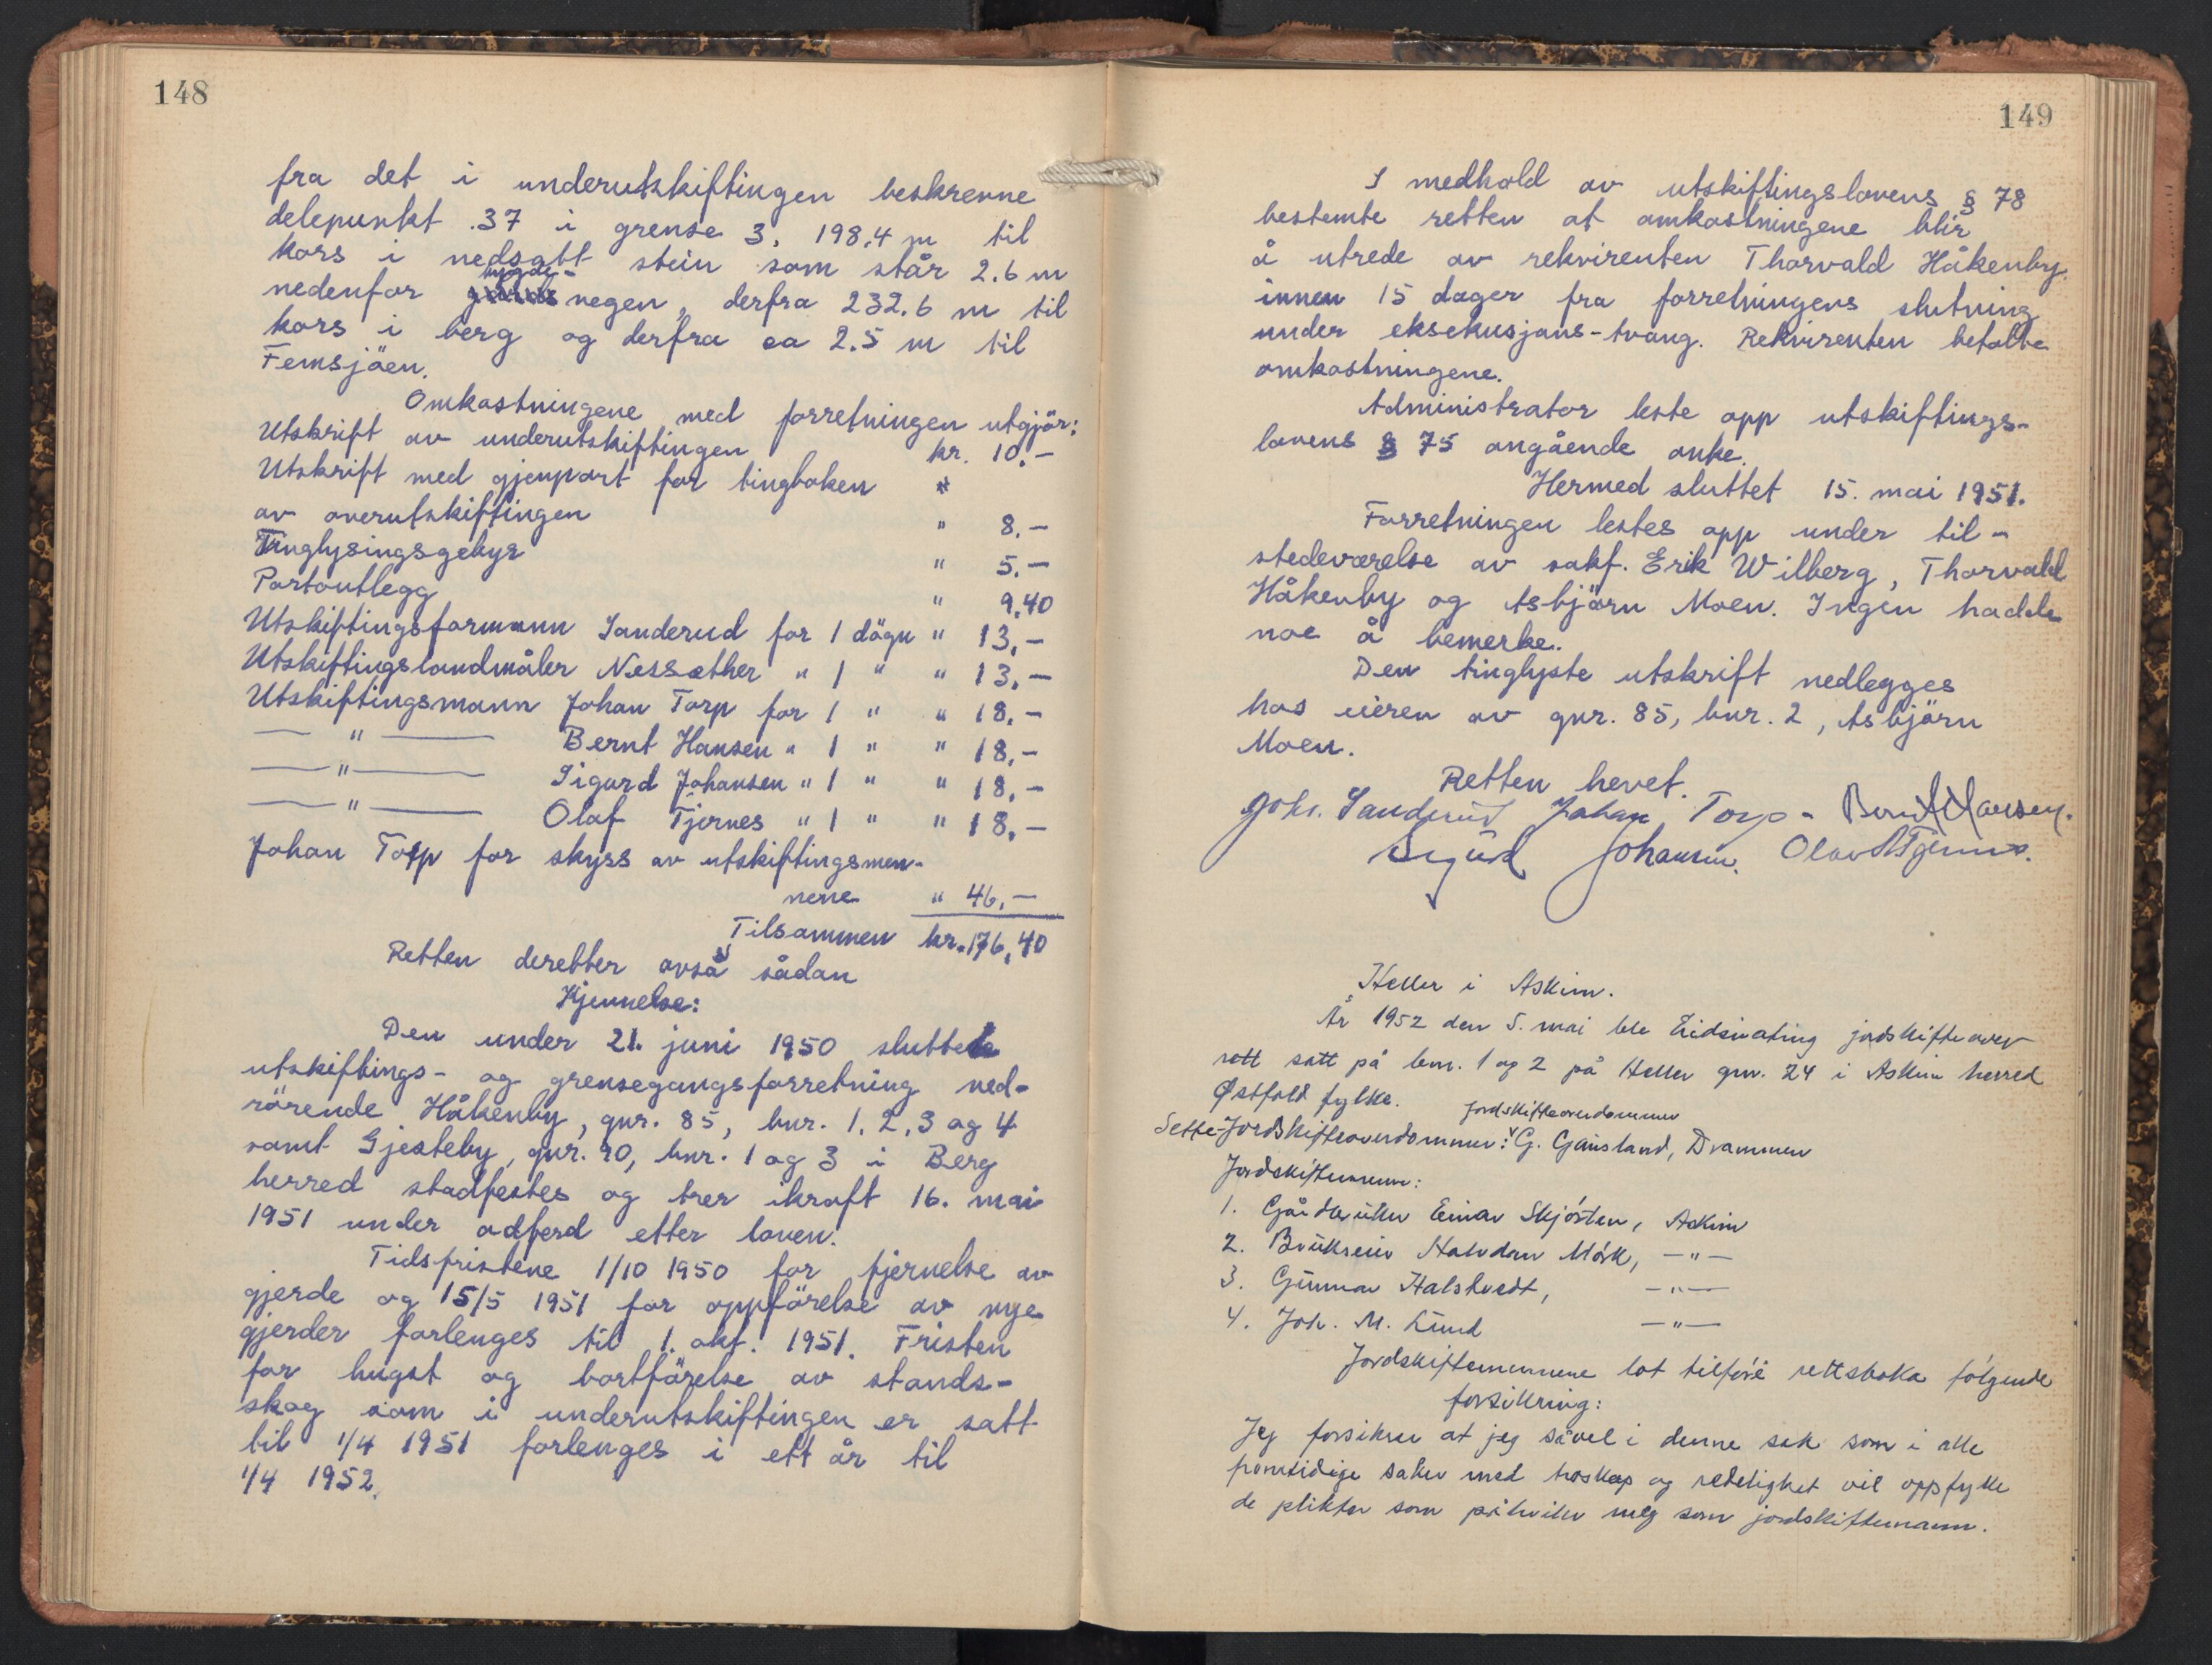 148
fra det i underutskiftingen beskrevne
delepunkt 37 i grense 3, 198,4 m til
kors i nedsatt stein som står 2.6 m
nedenfor bygdevegen, derfra 232.6 m til
kors i berg og derfra ca 2.5 m til
Femsjöen.
Omkostningene med forretningen utgjör:
Utskrift av underutskiftingen kr. 10,-
Utskrift med gjenpart for tingboken "
av overutskiftingen " 8,-
Tinglysingsgebyr " 5,-
Portoutlegg " 9,40
Utskiftingsformann Sanderud for 1 dögn " 13,-
Utskiftingslandmåler Nessæther " 1 " " 13,-
Utskiftingsmann Johan Torp for 1 " " 18,-
— " — Bernt Hansen " 1 " " 18,-
— " — Sigurd Johansen " 1 " " 18,-
— " — Olaf Tjernes " 1 " " 18,-
Johan Torp for skyss av utskiftingsmen-
nene " 46,-
Tilsammen kr. 176,40
Retten deretter avsa sådan
Kjennelse:
Den under 21. juni 1950 sluttede
utskiftings- og grensegangsforretning ved-
rörende Håkenby, gnr. 85, bnr. 1, 2, 3 og 4
samt Gjesteby, gnr. 90, bnr. 1 og 3 i Berg
herred stadfestes og trer ikraft 16. mai
1951 under adferd etter loven.
Tidsfristene 1/10 1950 for fjernelse av
gjerde og 15/5 1951 for oppförelse av nye
gjerder forlenges til 1. okt. 1951. Fristen
for hugst og bortförelse av stands-
skog som i underutskiftingen er satt
til 1/4 1951 forlenges i ett år til
1/4 1952.
149
I medhold av utskiftingslovens § 78
bestemte retten at omkostningene blir
å utrede av rekvirenten Thorvald Håkenby
innen 15 dager fra forretningens slutning
under eksekusjons-tvang. Rekvirenten betalte
omkostningene.
Administrator leste opp utskiftings-
lovens § 75 angående anke.
Hermed sluttet 15. mai 1951.
Forretningen lestes opp under til-
stedeværelse av sakf. Erik Wilberg, Thorvald
Håkenby og Asbjörn Moen. Ingen hadde
noe å bemerke.
Den tinglyste utskrift nedlegges
hos eieren av gnr. 85, bnr. 2, Asbjörn
Moen.
Retten hevet.
Johs. Sanderud Johan Torp - Bernt Hansen.
Sigurd Johansen. Olav A Tjernes.
Heller i Askim.
År 1952 den 5. mai ble Eidsivating jordskifteover-
rett satt på bnr. 1 og 2 på Heller gnr. 24 i Askim herred
Østfold fylke.
jordskifteoverdommer
Sette-Jordskifteoverdommer: G. Gausland, Drammen
Jordskiftemenn:
1. Gårdbruker Einar Skjörten, Askim
2. Brukseier Halvdan Mörk, — " —
3. Gunnar Halstvedt, — " —
4. Joh. M. Lund — " —
Jordskiftemennene lot tilföre rettsboka fölgende
forsikring:
Jeg forsikrer at jeg såvel i denne sak som i alle
framtidige saker med troskap og redelighet vil oppfylle
de plikter som påhviler meg som jordskiftemann.